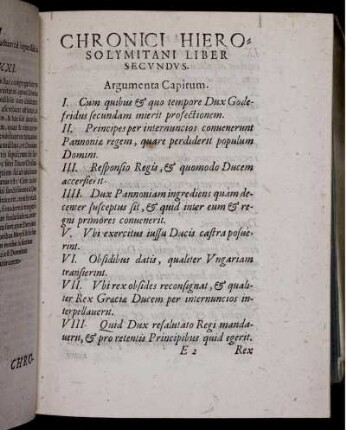 CHRONICI HIERO-
SOLYMITANI LIBER
SECVNDVS.
Argumenta Capitum.
I. Cum quibus & quo tempore Dux Gode-
fridus secundam inierit profectionem.
II. Principes per internuncios conuenerunt
Pannoniæ regem, quare perdiderit populum
Domini.
III. Responsio Regis, & quomodo Ducem
accersierit.
IIII. Dux Pannoniam ingrediens quàm de-
center susceptus sit, & quid inter eum & re-
gni primores conuenerit.
V. Vbi exercitus iussu Ducis castra posue-
rint.
VI. Obsidibus datis, qualiter Vngariam
transierint.
VII. Vbi rex obsides reconsignat, & quali-
ter Rex Græciæ Ducem per internuncios in-
terpellauerit.
VIII. Quid Dux resalutato Regi manda-
uerit, & pro retentis Principibus quid egerit.
E 2 Rex
CHRO-